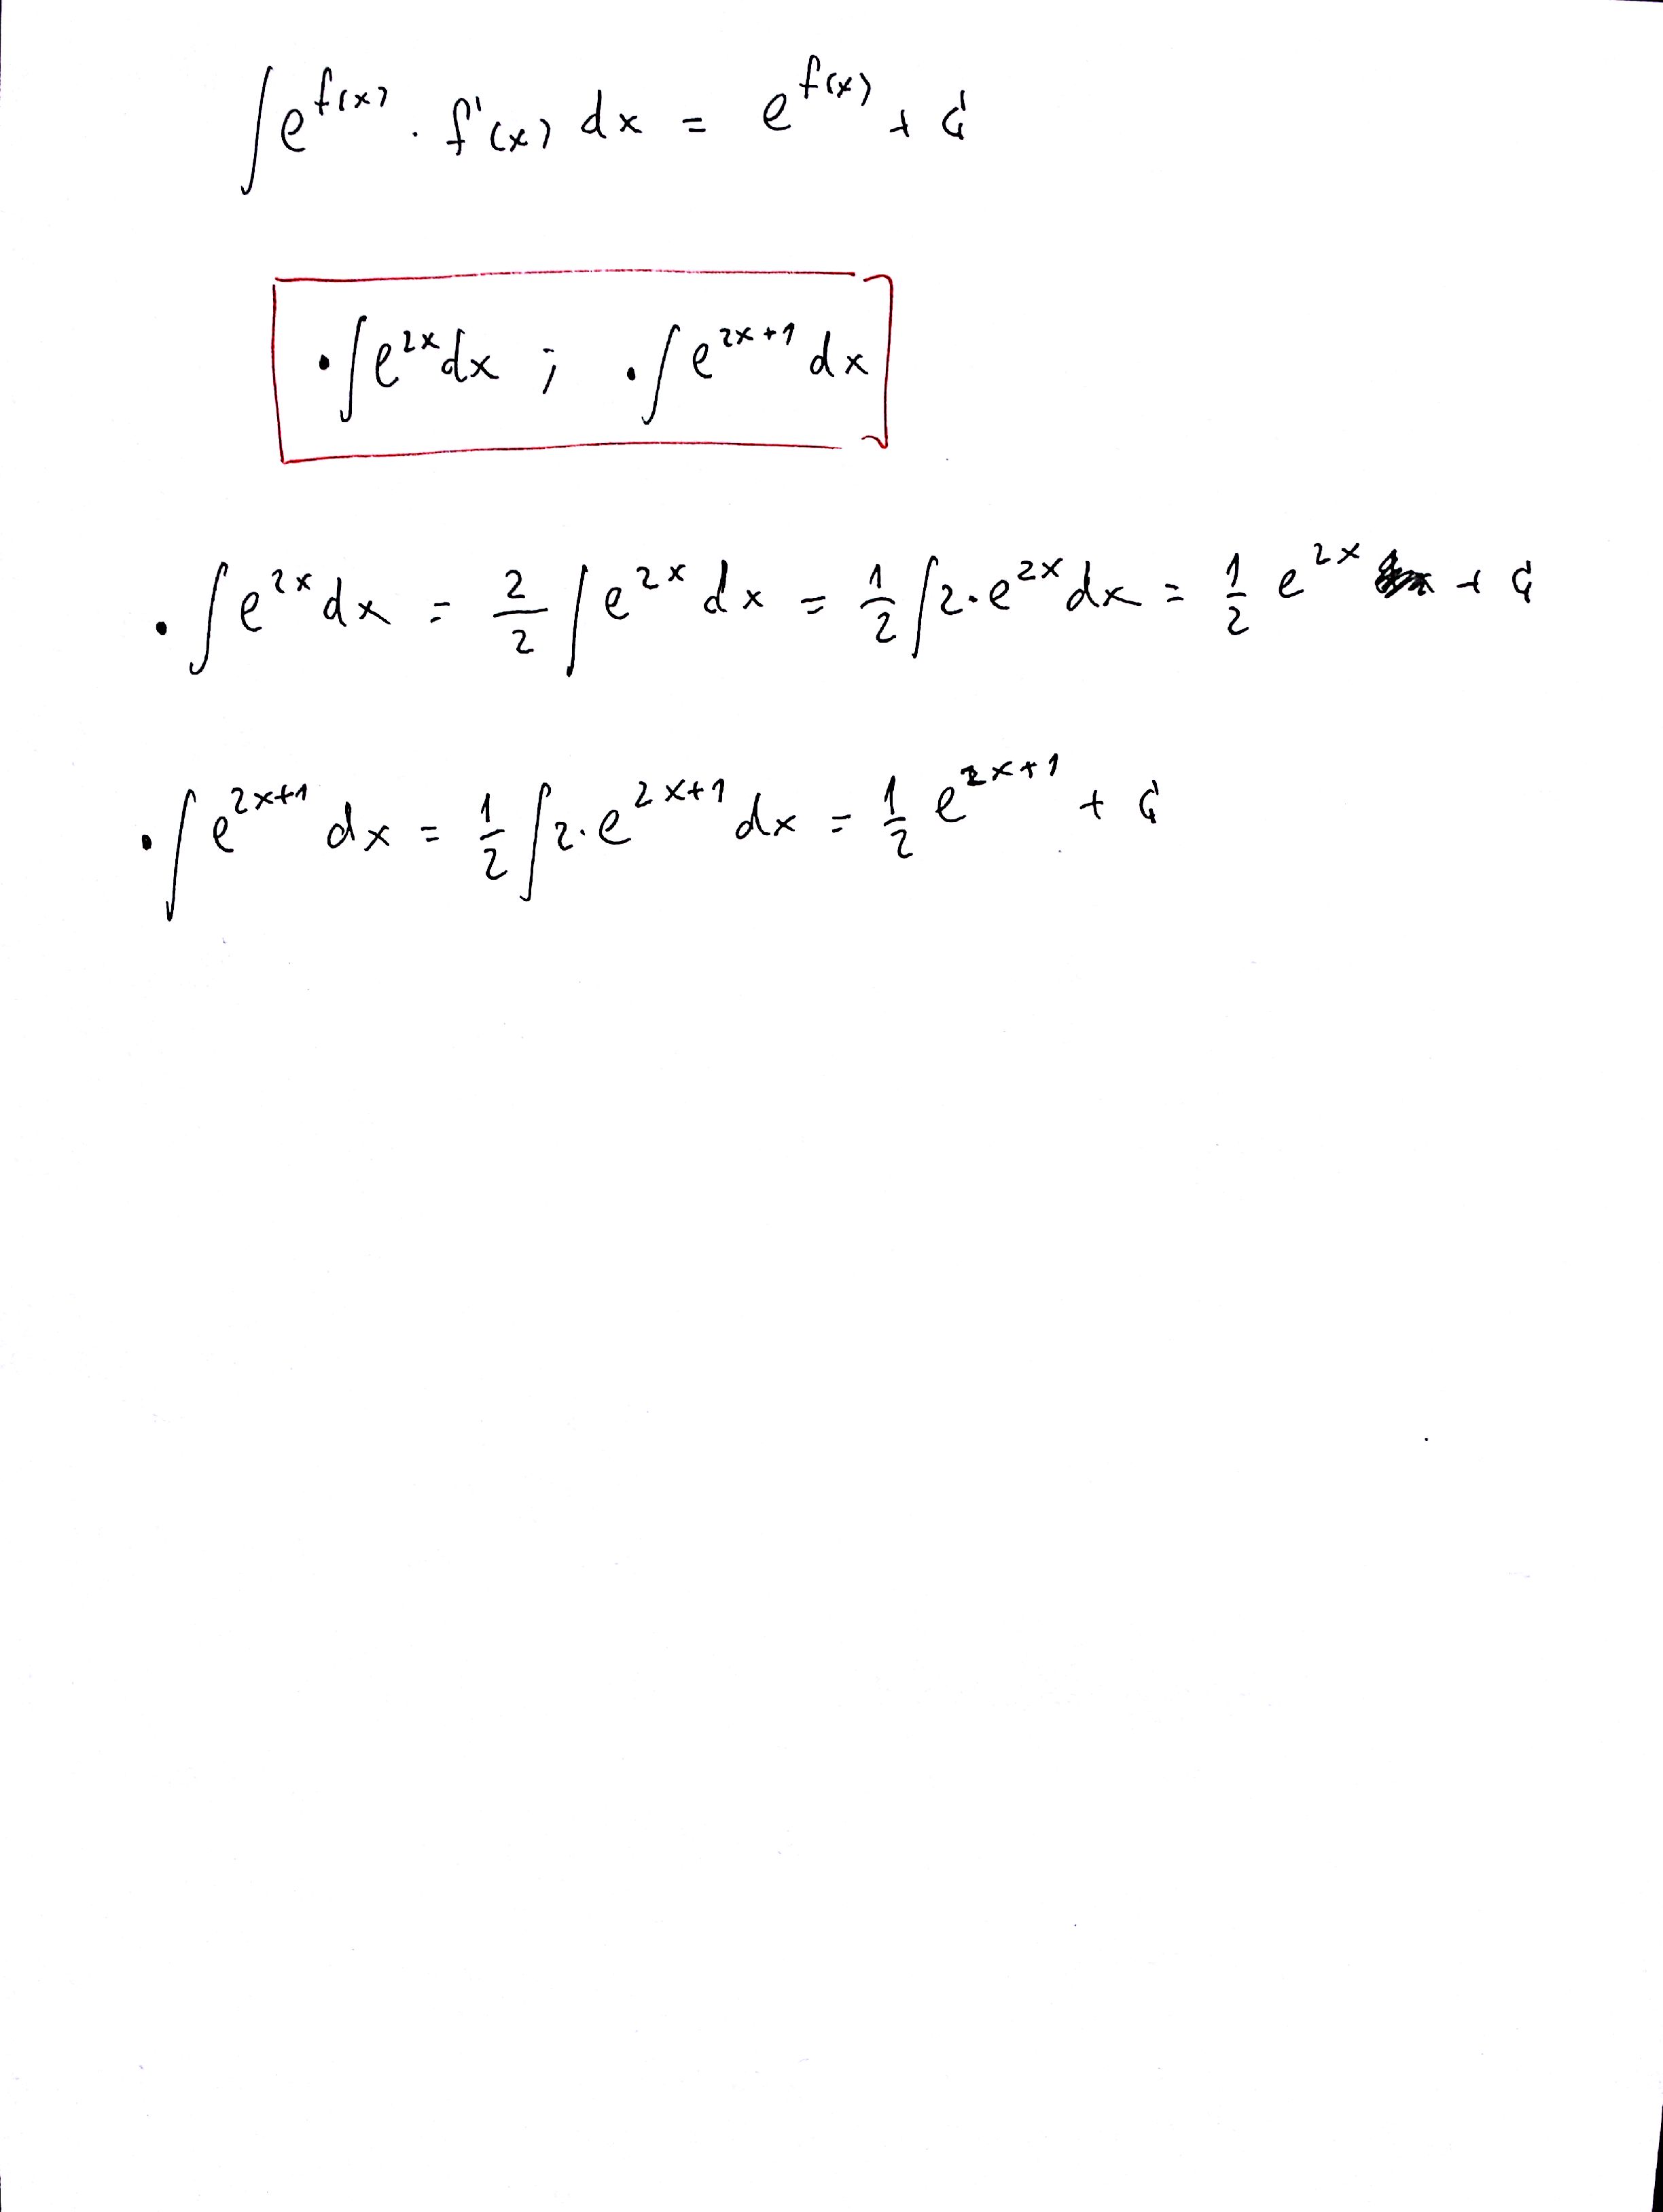 ∫ e^{f(x)} · f'(x) dx = e^{f(x)} + C
• ∫ e^{2x} dx ; • ∫ e^{2x+1} dx
• ∫ e^{2x} dx = 2/2 ∫ e^{2x} dx = 1/2 ∫ 2·e^{2x} dx = 1/2 e^{2x} + C
• ∫ e^{2x+1} dx = 1/2 ∫ 2·e^{2x+1} dx = 1/2 e^{2x+1} + C